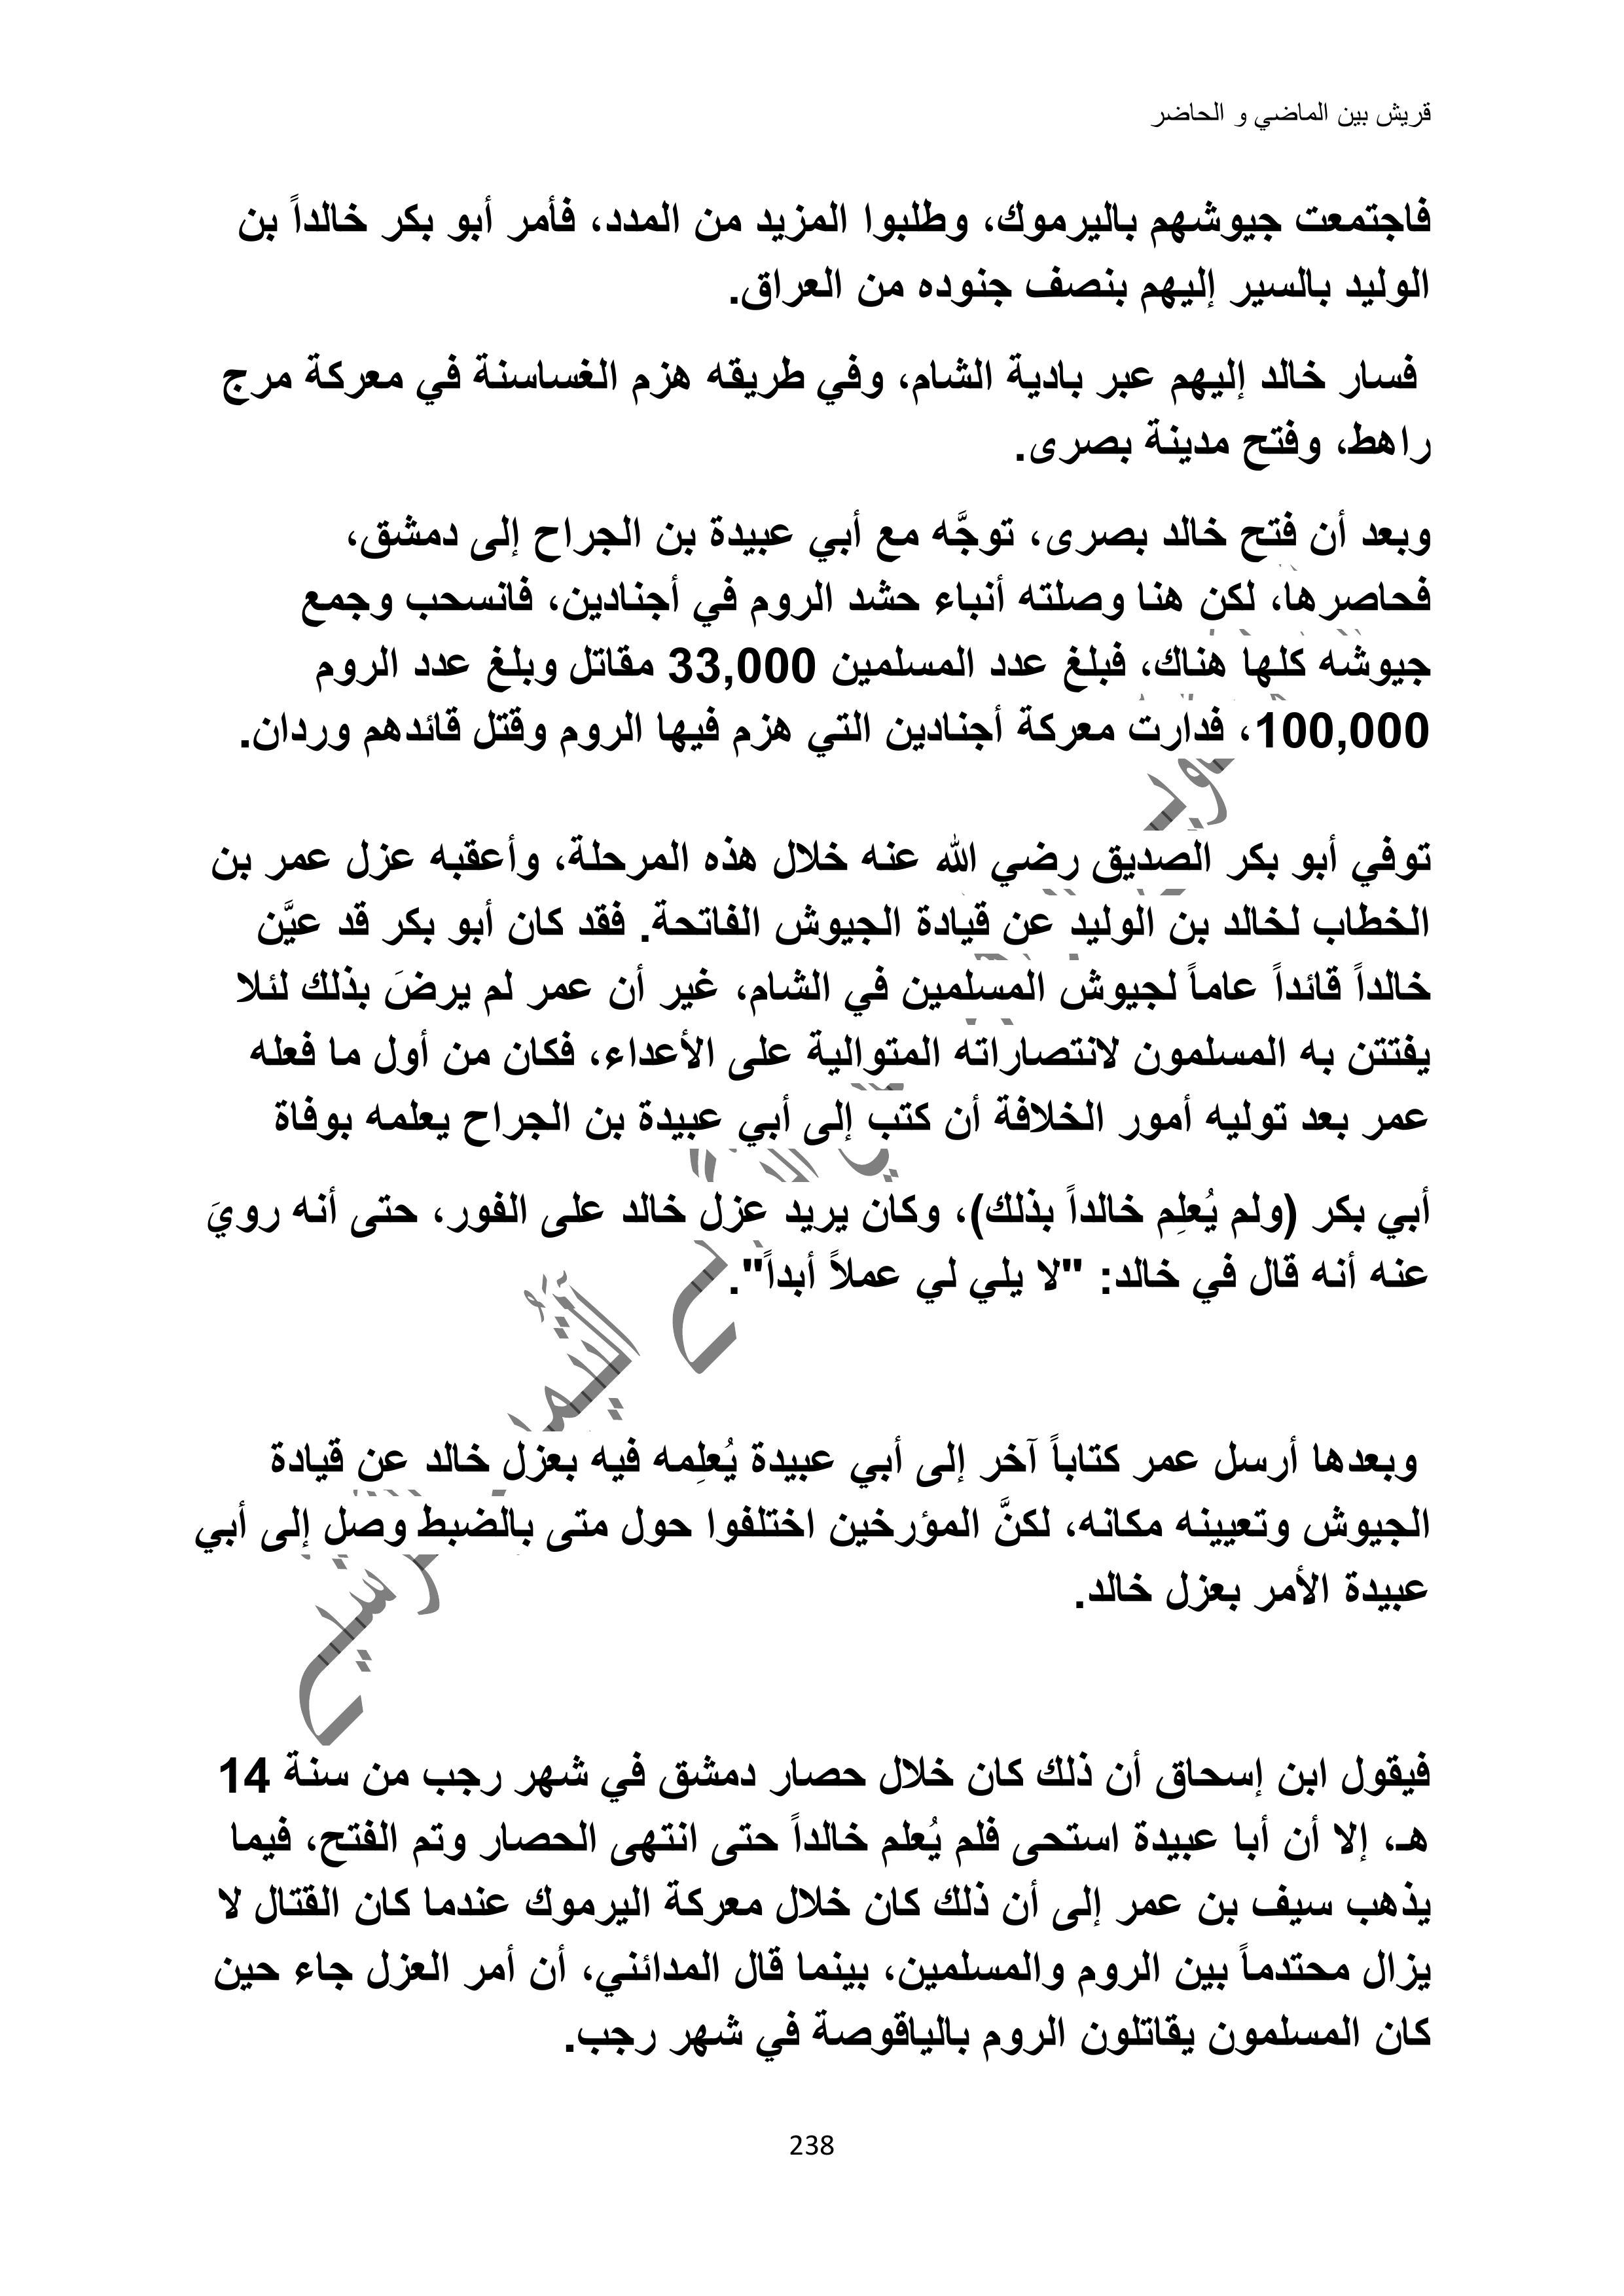 قريش بين الماضي و الحاضر
فاجتمعت جيوشهم باليرموك، وطلبوا المزيد من المدد، فأمر أبو بكر خالداً بن
الوليد بالسير إليهم بنصف جنوده من العراق.
فسار خالد إليهم عبر بادية الشام، وفي طريقه هزم الغساسنة في معركة مرج
راهط، وفتح مدينة بصرى.
وبعد أن فتح خالد بصرى، توجَّه مع أبي عبيدة بن الجراح إلى دمشق،
فحاصرها، لكن هنا وصلته أنباء حشد الروم في أجنادين، فانسحب وجمع
جيوشه كلها هناك، فبلغ عدد المسلمين 33,000 مقاتل وبلغ عدد الروم
100,000، فدارت معركة أجنادين التي هزم فيها الروم وقتل قائدهم وردان.
توفي أبو بكر الصديق رضي الله عنه خلال هذه المرحلة، وأعقبه عزل عمر بن
الخطاب لخالد بن الوليد عن قيادة الجيوش الفاتحة. فقد كان أبو بكر قد عيَّن
خالداً قائداً عاماً لجيوش المسلمين في الشام، غير أن عمر لم يرضَ بذلك لئلا
يفتتن به المسلمون لانتصاراته المتوالية على الأعداء، فكان من أول ما فعله
عمر بعد توليه أمور الخلافة أن كتب إلى أبي عبيدة بن الجراح يعلمه بوفاة
أبي بكر (ولم يُعلِم خالداً بذلك)، وكان يريد عزل خالد على الفور، حتى أنه رويَ
عنه أنه قال في خالد: "لا يلي لي عملاً أبداً".
وبعدها أرسل عمر كتاباً آخر إلى أبي عبيدة يُعلِمه فيه بعزل خالد عن قيادة
الجيوش وتعيينه مكانه، لكنَّ المؤرخين اختلفوا حول متى بالضبط وصل إلى أبي
عبيدة الأمر بعزل خالد.
فيقول ابن إسحاق أن ذلك كان خلال حصار دمشق في شهر رجب من سنة 14
هـ، إلا أن أبا عبيدة استحى فلم يُعلم خالداً حتى انتهى الحصار وتم الفتح، فيما
يذهب سيف بن عمر إلى أن ذلك كان خلال معركة اليرموك عندما كان القتال لا
يزال محتدماً بين الروم والمسلمين، بينما قال المدائني، أن أمر العزل جاء حين
كان المسلمون يقاتلون الروم بالياقوصة في شهر رجب.
238